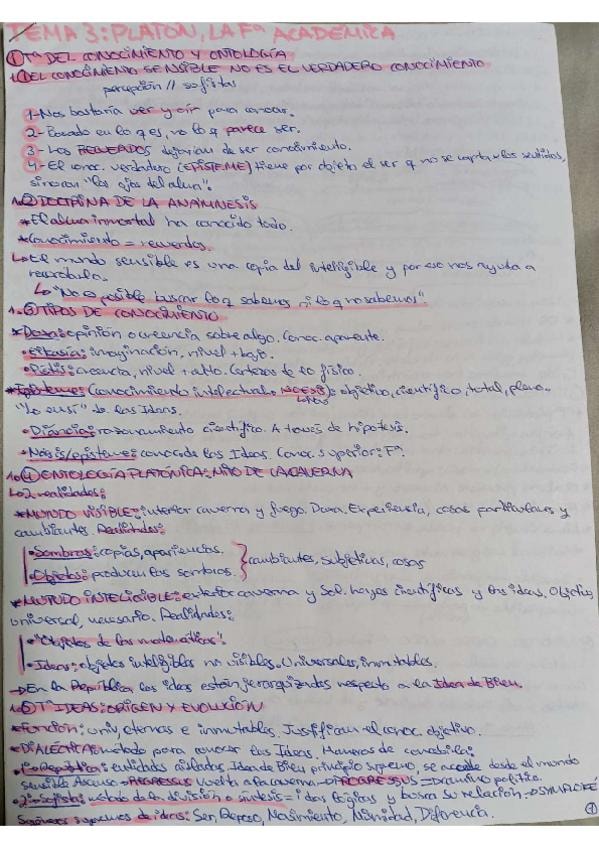 TEMA 3: PLATÓN, LA Fª ACADÉMICA
① Tª DEL CONOCIMIENTO Y ONTOLOGÍA
1.① EL CONOCIMIENTO SENSIBLE NO ES EL VERDADERO CONOCIMIENTO
percepción // sofistas
1-Nos bastaría ver y oír para conocer.
2-Basado en lo q es, no lo q parece ser.
3-Los RECUERDOS dejarían de ser conocimiento.
4-El conoc. verdadero (EPISTEME) tiene por objeto el ser q no se capta x los sentidos,
sino con "los ojos del alma".
1.② DOCTRINA DE LA ANÁMNESIS
*El alma inmortal ha conocido todo.
*Conocimiento = recuerdos.
↳El mundo sensible es una copia del inteligible y por eso nos ayuda a
recordarlo.
↳"No es posible buscar lo q sabemos ni lo q no sabemos".
1.③ TIPOS DE CONOCIMIENTO
*Doxa: opinión o creencia sobre algo. Conoc. aparente.
•Eikasía: imaginación, nivel + bajo.
•Pistis: creencia, nivel + alto. Certezas de lo físico.
*Episteme: (conocimiento intelectual. NOESIS): objetivo, científico, total, pleno.
"Lo en sí" de las Ideas.
•Diánoia: razonamiento científico. A través de hipótesis.
•Nóesis/episteme: conocer de las Ideas. Conoc. superior: Fª.
1.④ ONTOLOGÍA PLATÓNICA: MITO DE LA CAVERNA
↳2 realidades:
*MUNDO VISIBLE: interior caverna y fuego. Doxa. Experiencia, cosas particulares y
cambiantes. Realidades:
•Sombras: copias, apariencias.
•Objetos: producen las sombras. } cambiantes, subjetivas, cosas
*MUNDO INTELIGIBLE: exterior caverna y Sol. científicas y las ideas. Objetivo,
universal, necesario. Realidades:
•"Objetos de las matemáticas".
•Ideas: objetos inteligibles no visibles. Universales, inmutables.
→En la República las ideas están jerarquizadas respecto a la Idea de Bien.
1.⑤ Tª IDEAS: ORIGEN Y EVOLUCIÓN
*Función: univ, eternas e inmutables. Justifican el conoc. objetivo.
*DIALÉCTICA: método para conocer las Ideas. Maneras de concebirla:
•1-República: entidades aisladas. Idea de Bien principio supremo, se accede desde el mundo
sensible. Ascenso → REGRESSUS vuelta a la caverna → PROGRESSUS = político.
•2-Sofista: método de la división o síntesis = ideas lógicas y busca su relación. → SYMPLOKÉ
Géneros supremos de ideas: Ser, Reposo, Movimiento, Mismidad, Diferencia.
①